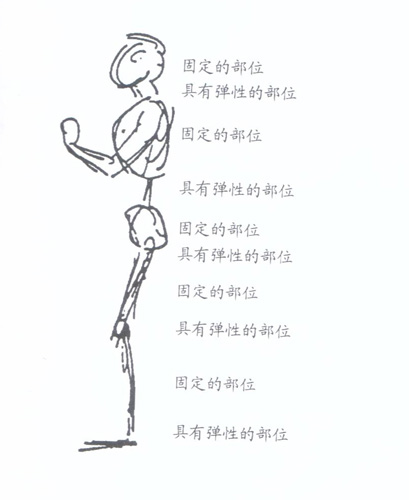 固定的部位
具有弹性的部位
固定的部位
具有弹性的部位
固定的部位
具有弹性的部位
固定的部位
具有弹性的部位
固定的部位
具有弹性的部位